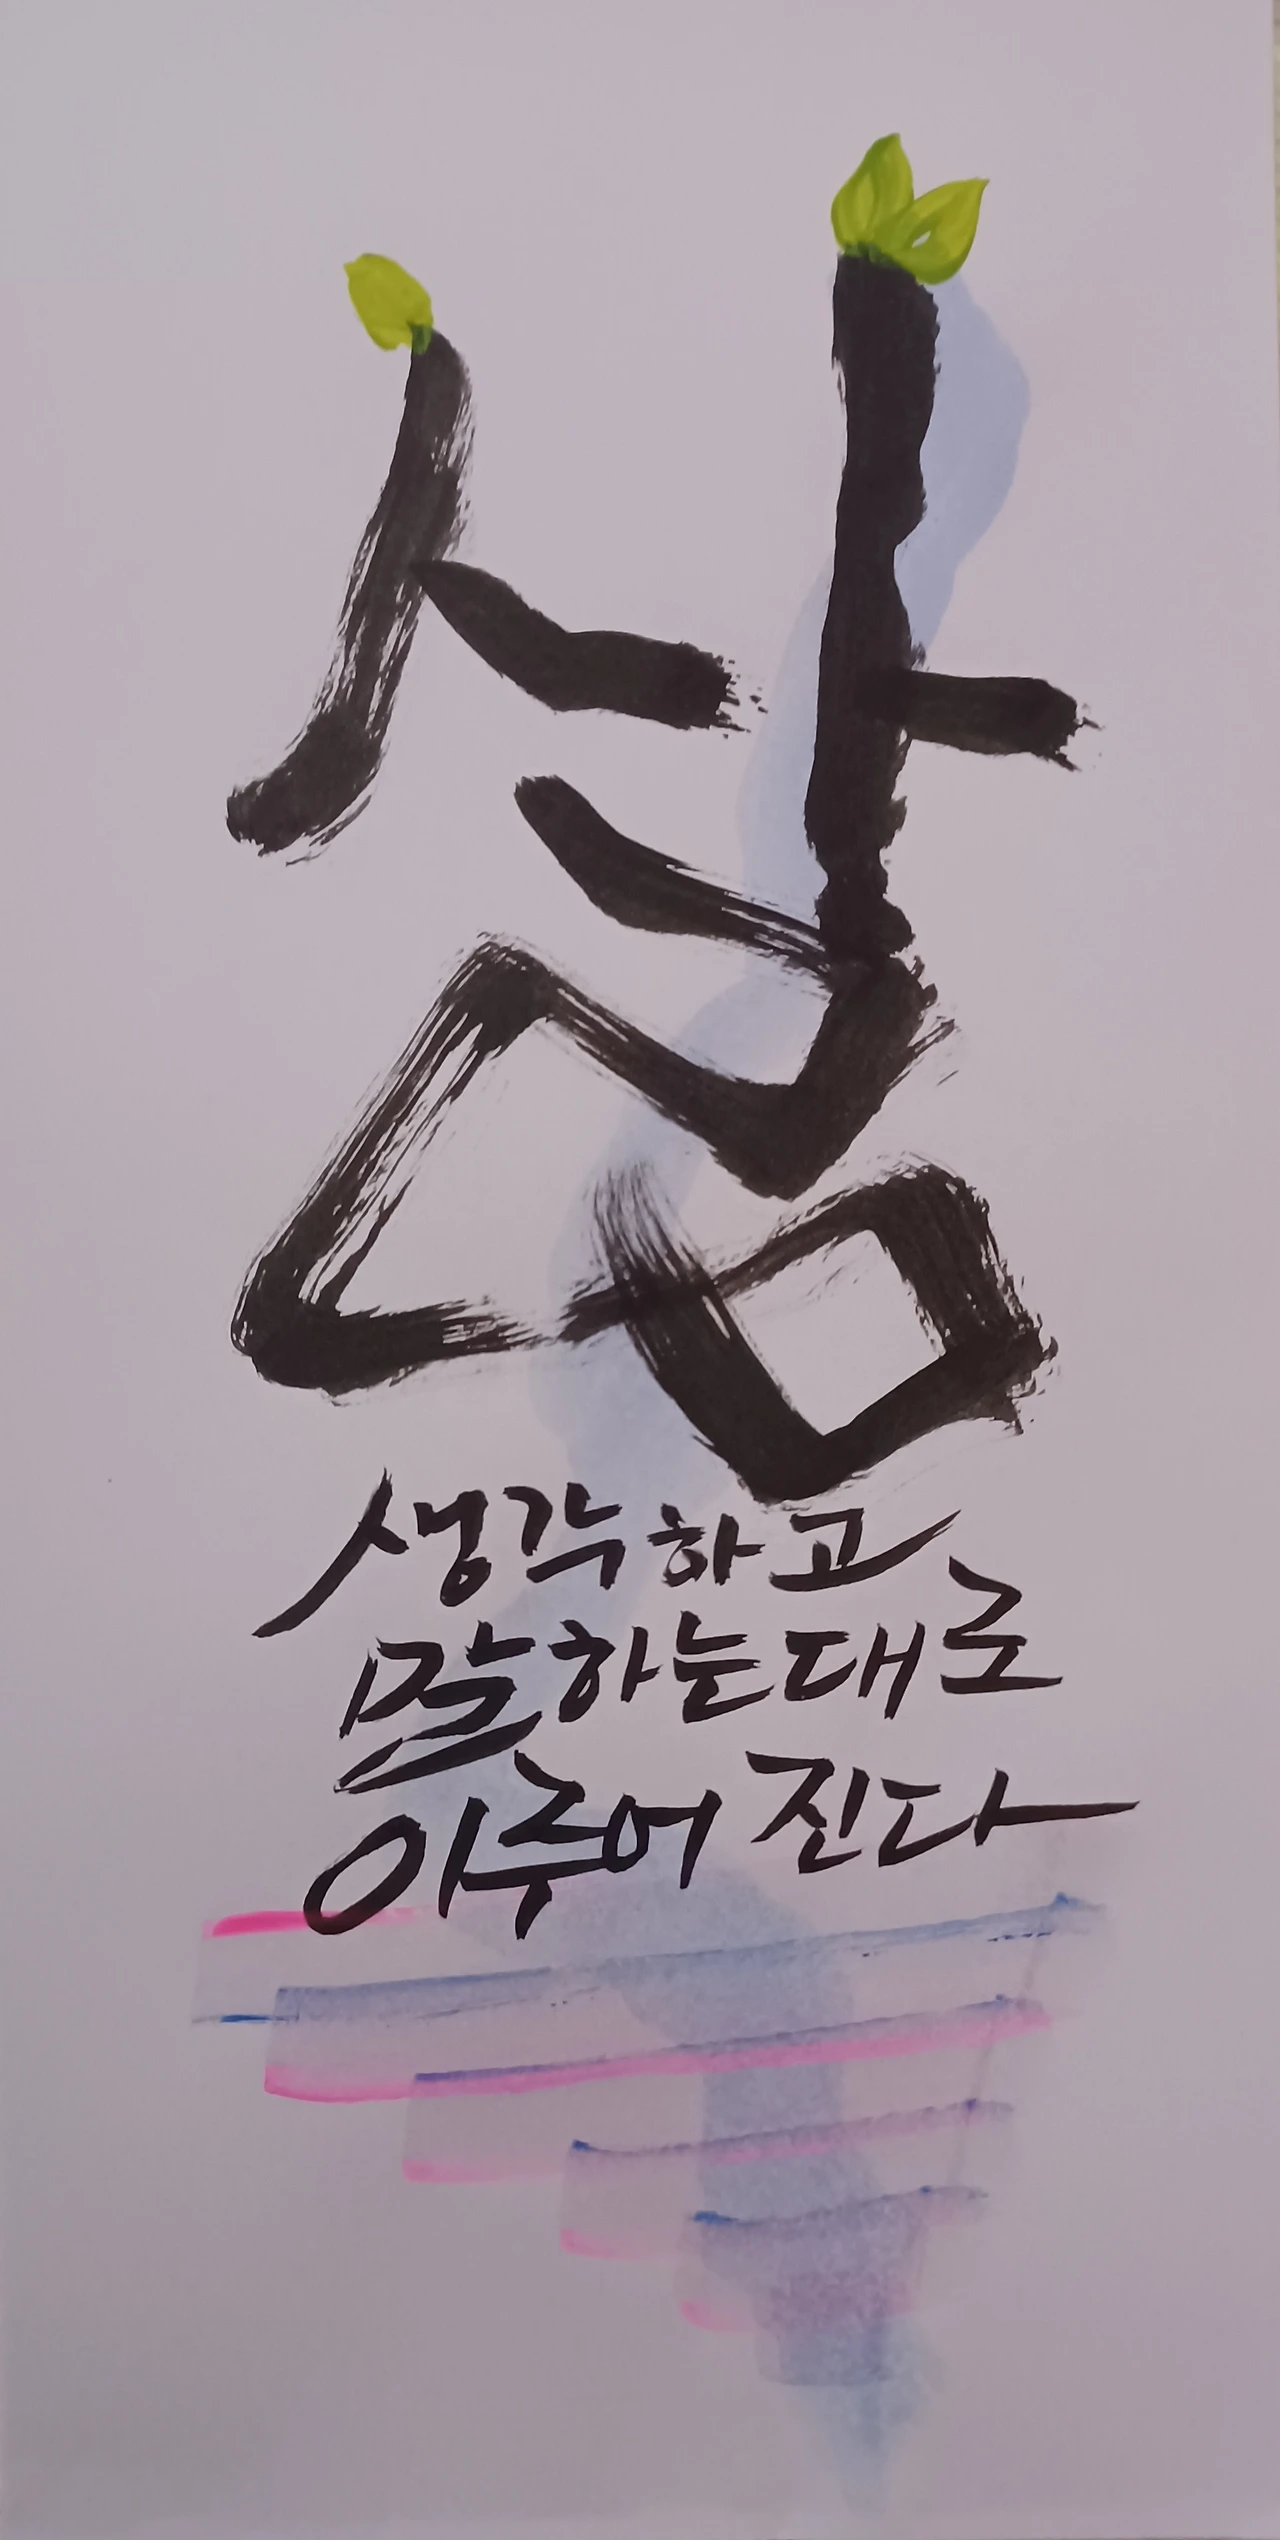 삶
생각하고
말하는대로
이루어 진다